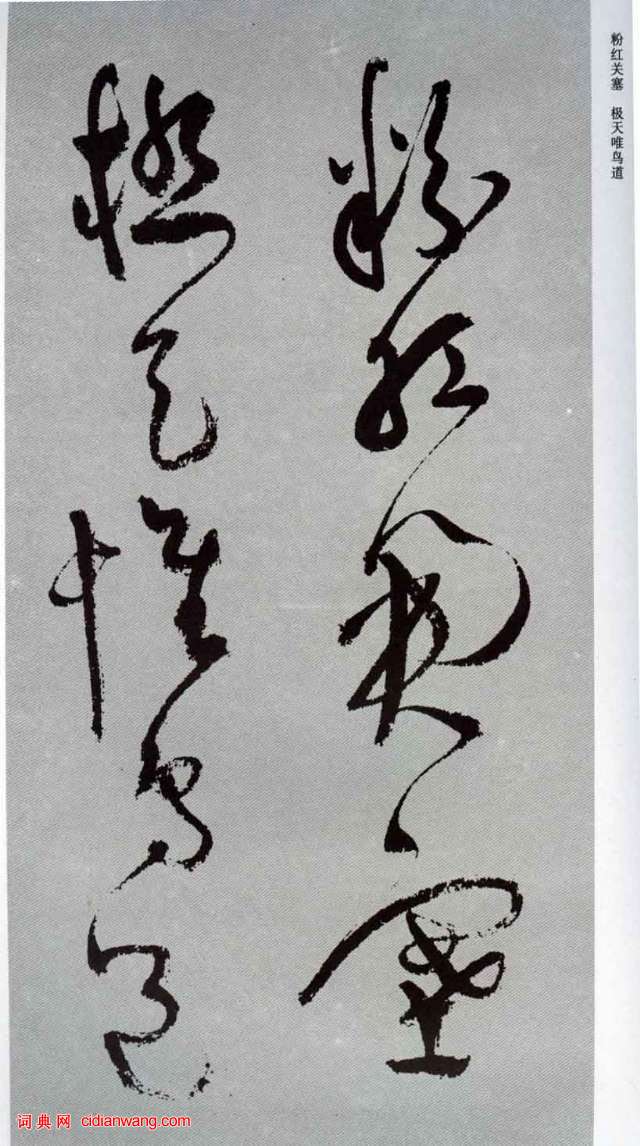 粉红关塞 极天惟鸟道
粉红关塞 极天唯鸟道
词典网 cidianwang.com